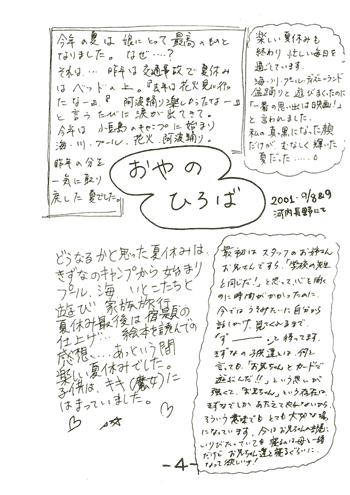 今年の夏は 娘にとって 最高のものと
なりました。 なぜ・・・・?
それは… 昨年は交通事故で夏休み
はベッドの上。『去年は花火見に行っ
たな〜』『阿波踊り楽しかったな〜』
と言うたびに 涙が出てきて。
今年は 小豆島のキャンプに始まり
海・川・プール・花火・阿波踊り。
昨年の分を
一気に取り
戻した夏でした。
楽しい夏休みも
終わり 忙しい毎日を
過ごしています。
海・川・プール・ディズニーランド
盆踊りと 遊びまくったのに
「一番の思い出は映画!」
と言われました。
私の真黒になった顔
だけが むなしく輝いた
夏だった……。
おやの
ひろば
2001.9/8&9
河内長野にて
どうなるかと思った夏休みは、
きずなのキャンプから始まり
プール、海 いとこたちと
遊び 家族旅行。
夏休み最後は宿題の
仕上げ… 絵本を読んでの
感想、…あっという間
楽しい夏休みでした。
子供は、キキ(魔女)に
はまっていました。
最初は スタッフのお姉さん
お兄てんですら、「学校の先生
と同じだ!」と思って、心を開く
のに時間がかかったのに、
今では うちみたいに 自分から
話しかけ、見てくるまで
"ず――"
っと待ってます。
きずなの子供達は、何と
言っても「お兄ちゃんと カードで
遊ぶんだ!!」という思いが
強くて、"お兄ちゃん"という存在は、
きずなでしか あたえてやれないから、
そういう意味でも とても大切な場
になっています。今はお兄ちゃんの場に
いりびたっていても 寝るのは母と一緒
だけど、お兄ちゃん達と寝るぐらいに、
なって欲しいナ!
-4-